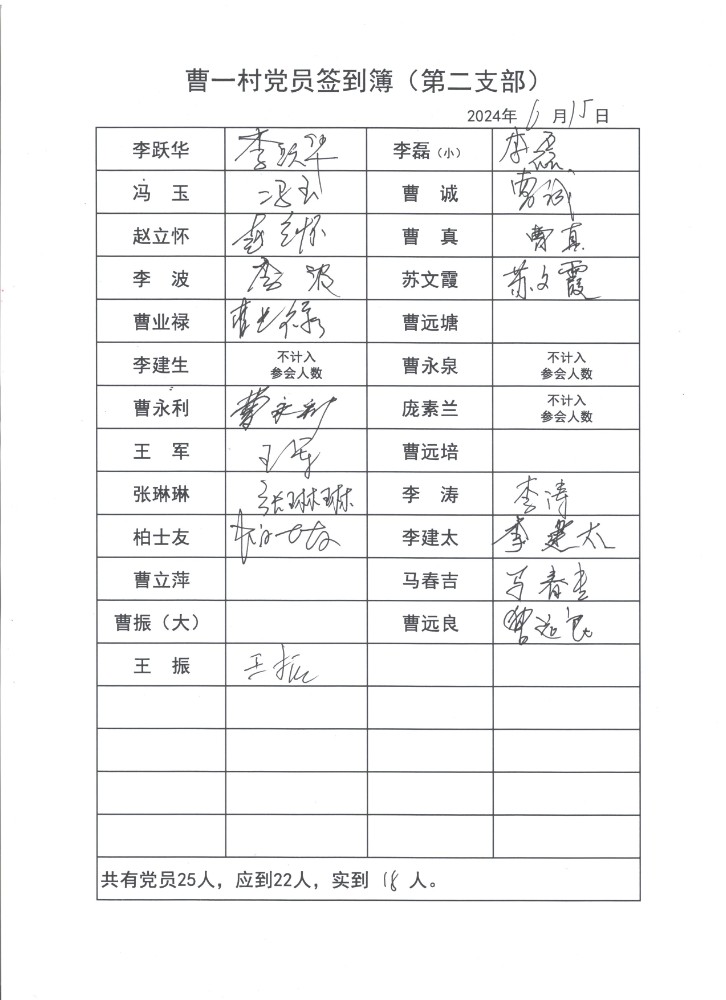 曹一村党员签到簿（第二支部）
2024年 6 月 15 日
李跃华 李跃华 李磊（小） 李磊
冯 玉 冯玉 曹 诚 曹诚
赵立怀 赵立怀 曹 真 曹真
李 波 李波 苏文霞 苏文霞
曹业禄 曹业禄 曹远塘
李建生 不计入 曹永泉 不计入
参会人数 参会人数
曹永利 曹永利 庞素兰 不计入
参会人数
王 军 王军 曹远培
张琳琳 张琳琳 李 涛 李涛
柏士友 柏士友 李建太 李建太
曹立萍 马春吉 马春吉
曹振（大） 曹远良 曹远良
王 振 王振
共有党员25人，应到22人，实到 18 人。